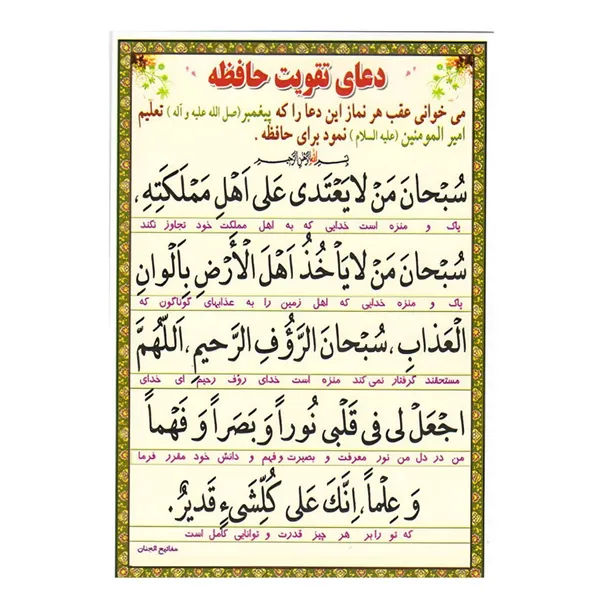 دعای تقویت حافظه
می خوانی عقب هر نماز این دعا را که پیغمبر (صل الله علیه و آله) تعلیم
امیر المومنین (علیه السلام) نمود برای حافظه .
بسم الله الرحمن الرحیم
سُبْحانَ مَنْ لایَعْتَدی عَلی اَهْلِ مَمْلَکَتِهِ،
پاک و منزه است خدایی که به اهل مملکت خود تجاوز نکند
سُبْحانَ مَنْ لایَاْخُذُ اَهْلَ الْأَرْضِ بِاَلْوانِ
پاک و منزه خدایی که اهل زمین را به عذابهای گوناگون که
الْعَذابِ، سُبْحانَ الرَّؤُفِ الرَّحیمِ، اَللّهُمَّ
مستحقند گرفتار نمی کند منزه است خدای روف رحیم ای خدای
اجْعَلْ لی فی قَلْبی نُوراً وَ بَصَراً وَ فَهْماً
من در دل من نور معرفت و بصیرت و فهم و دانش خود مقرر فرما
وَ عِلْماً، اِنَّکَ عَلی کُلِّشَیءٍ قَدیرٌ.
که تو رابر هر چیز قدرت و توانایی کامل است
مفاتیح الجنان